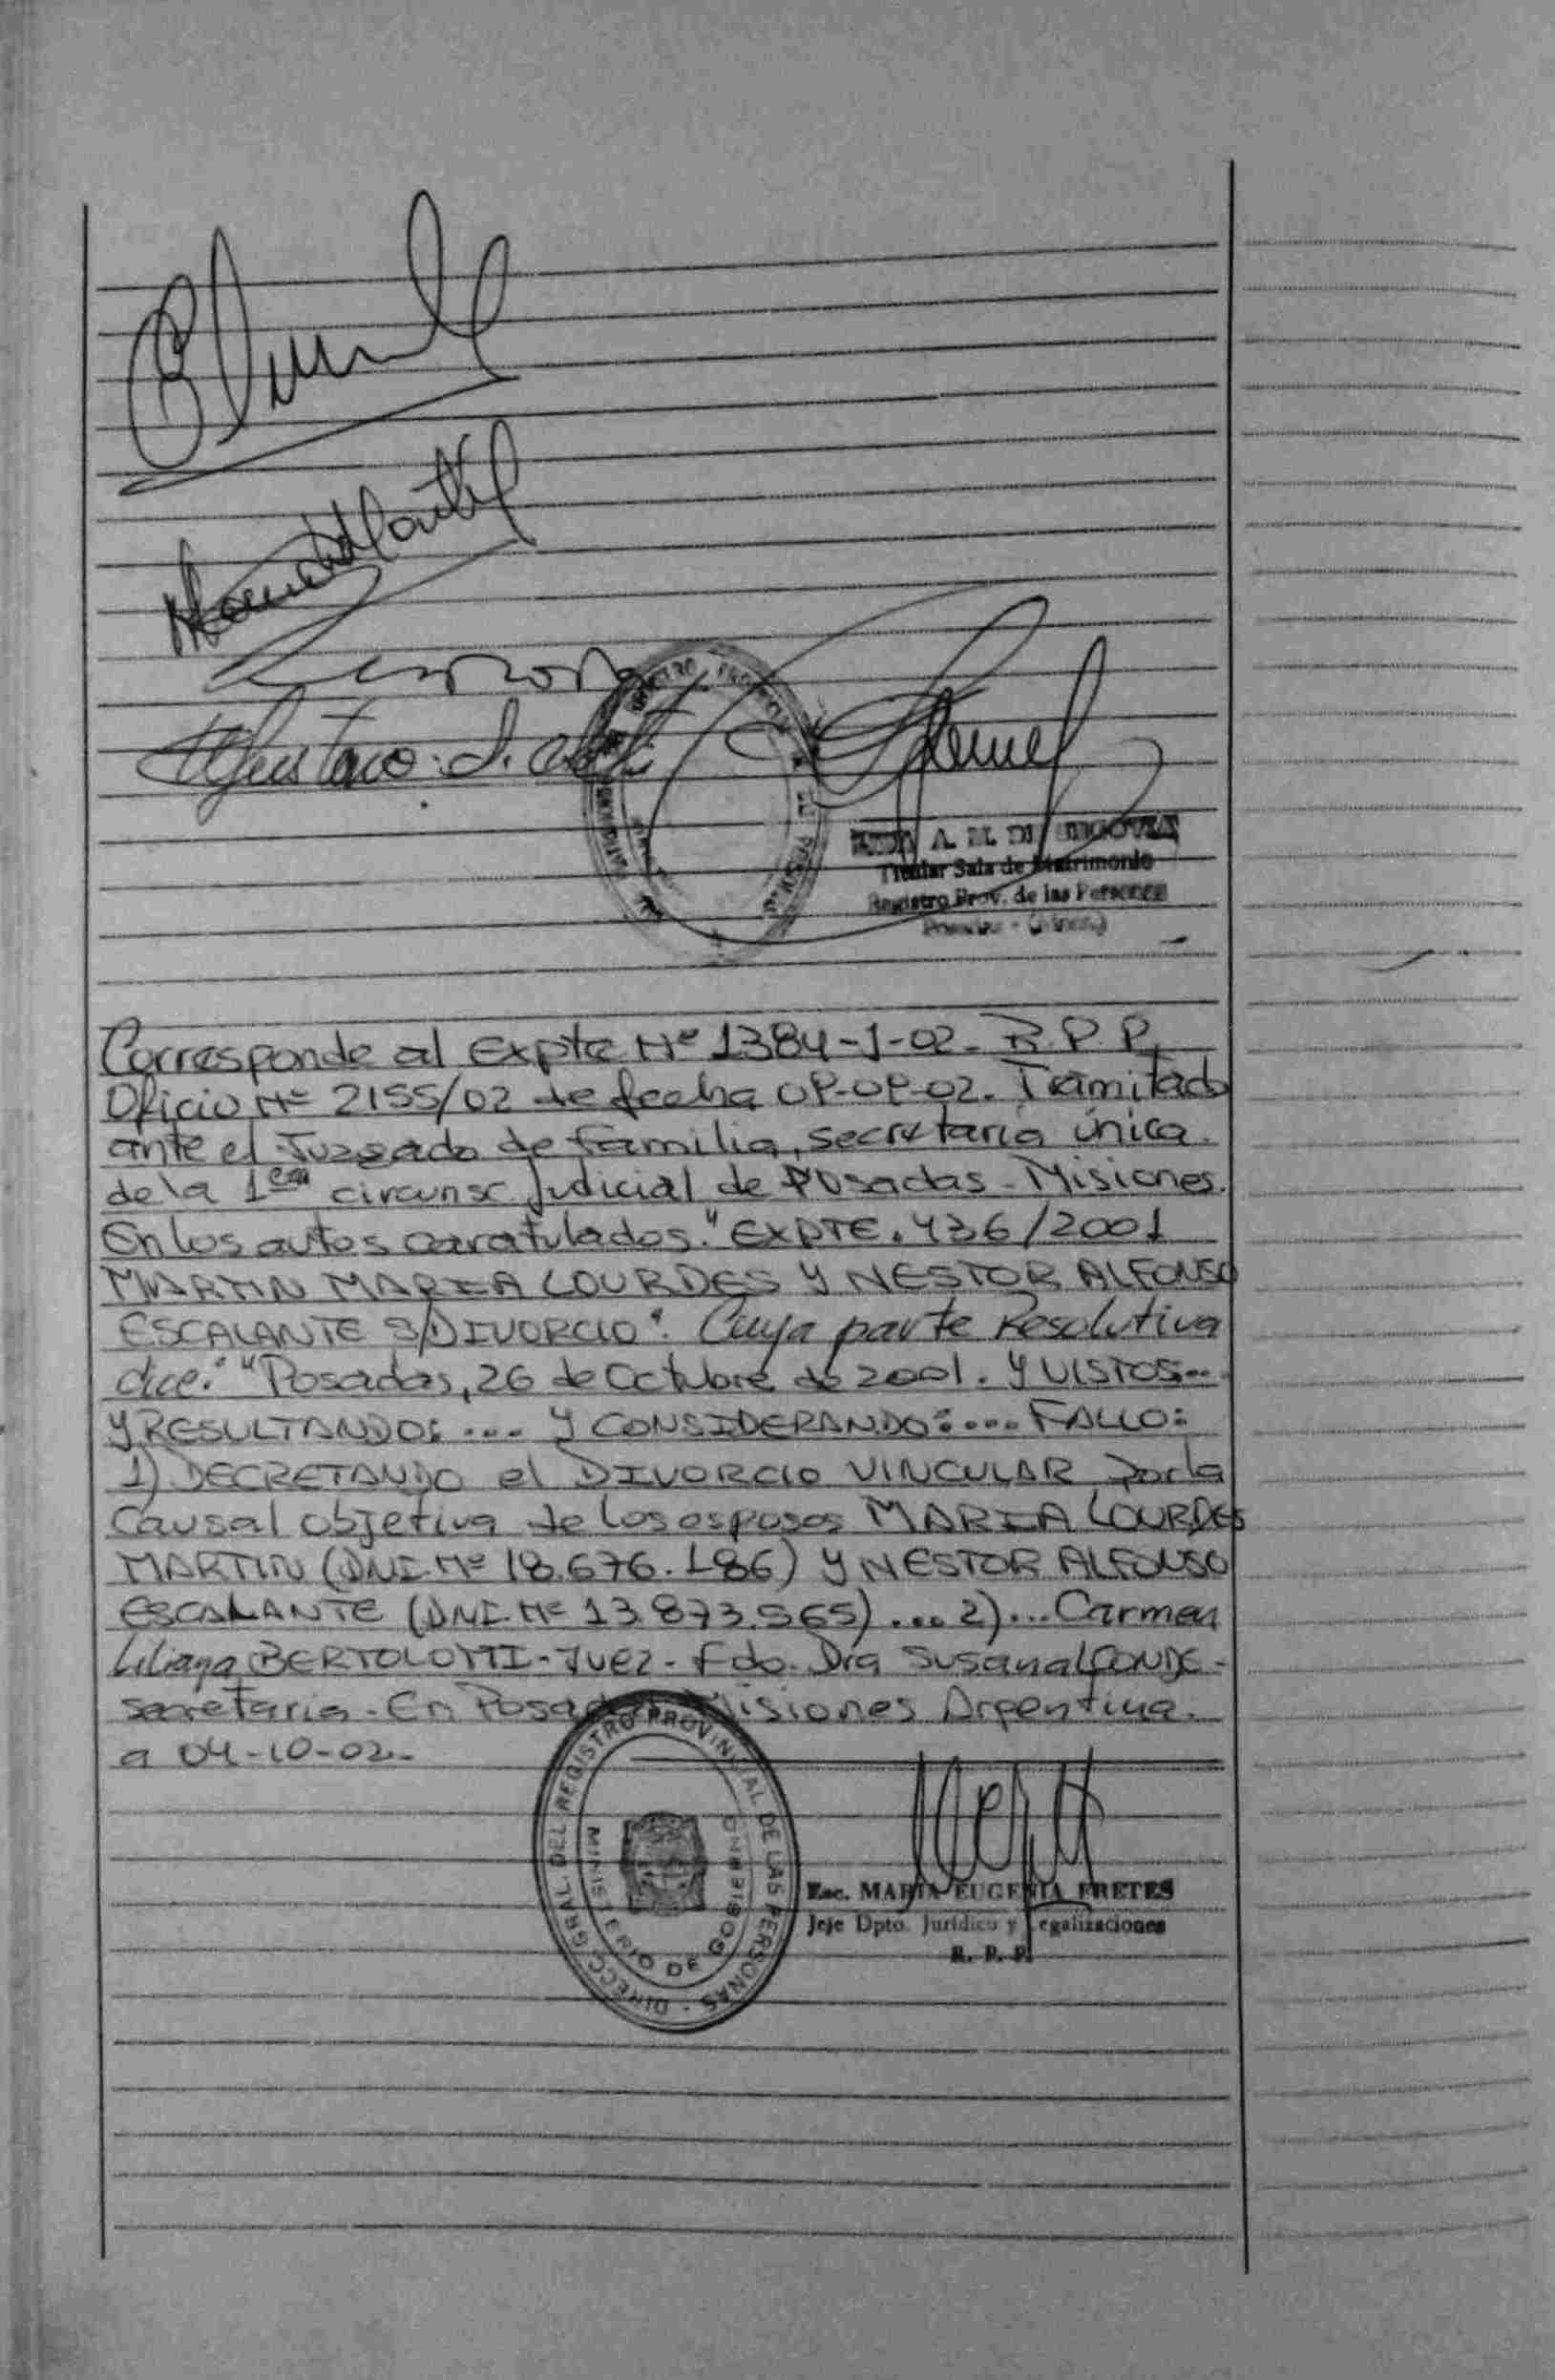 Gustavo
A. M. DE SEGOVIA
Titular Sala de Matrimonio
Registro Prov. de las Personas
Corresponde al Expte Nº 1384-J-02. R.P.P.
Oficio Nº 2155/02 de fecha 09-09-02. Tramitado
ante el Juzgado de familia, secretaría única
de la 1era circunsc Judicial de Posadas - Misiones.
En los autos caratulados: "EXPTE. 436/2001
MARTIN MARIA LOURDES Y NESTOR ALFONSO
ESCALANTE S/DIVORCIO". Cuya parte Resolutiva
dice: "Posadas, 26 de Octubre de 2001. Y VISTOS...
Y RESULTANDO: ... Y CONSIDERANDO: ... FALLO:
1) DECRETANDO el DIVORCIO VINCULAR por la
Causal objetiva de los esposos MARIA LOURDES
MARTIN (DNI. Nº 18.676.186) Y NESTOR ALFONSO
ESCALANTE (DNI. Nº 13.873.565) ... 2) ... Carmen
Liliana BERTOLOTTI - Juez - Fdo. Dra Susana CONDE -
secretaria. En Posadas Misiones Argentina.
a 04-10-02.-
DIRECC. GRAL. DEL REGISTRO PROVINCIAL DE LAS PERSONAS
MINISTERIO DE GOBIERNO
Esc. MARIA EUGENIA FRETES
Jefe Dpto. Jurídico y Legalizaciones
R. P. P.